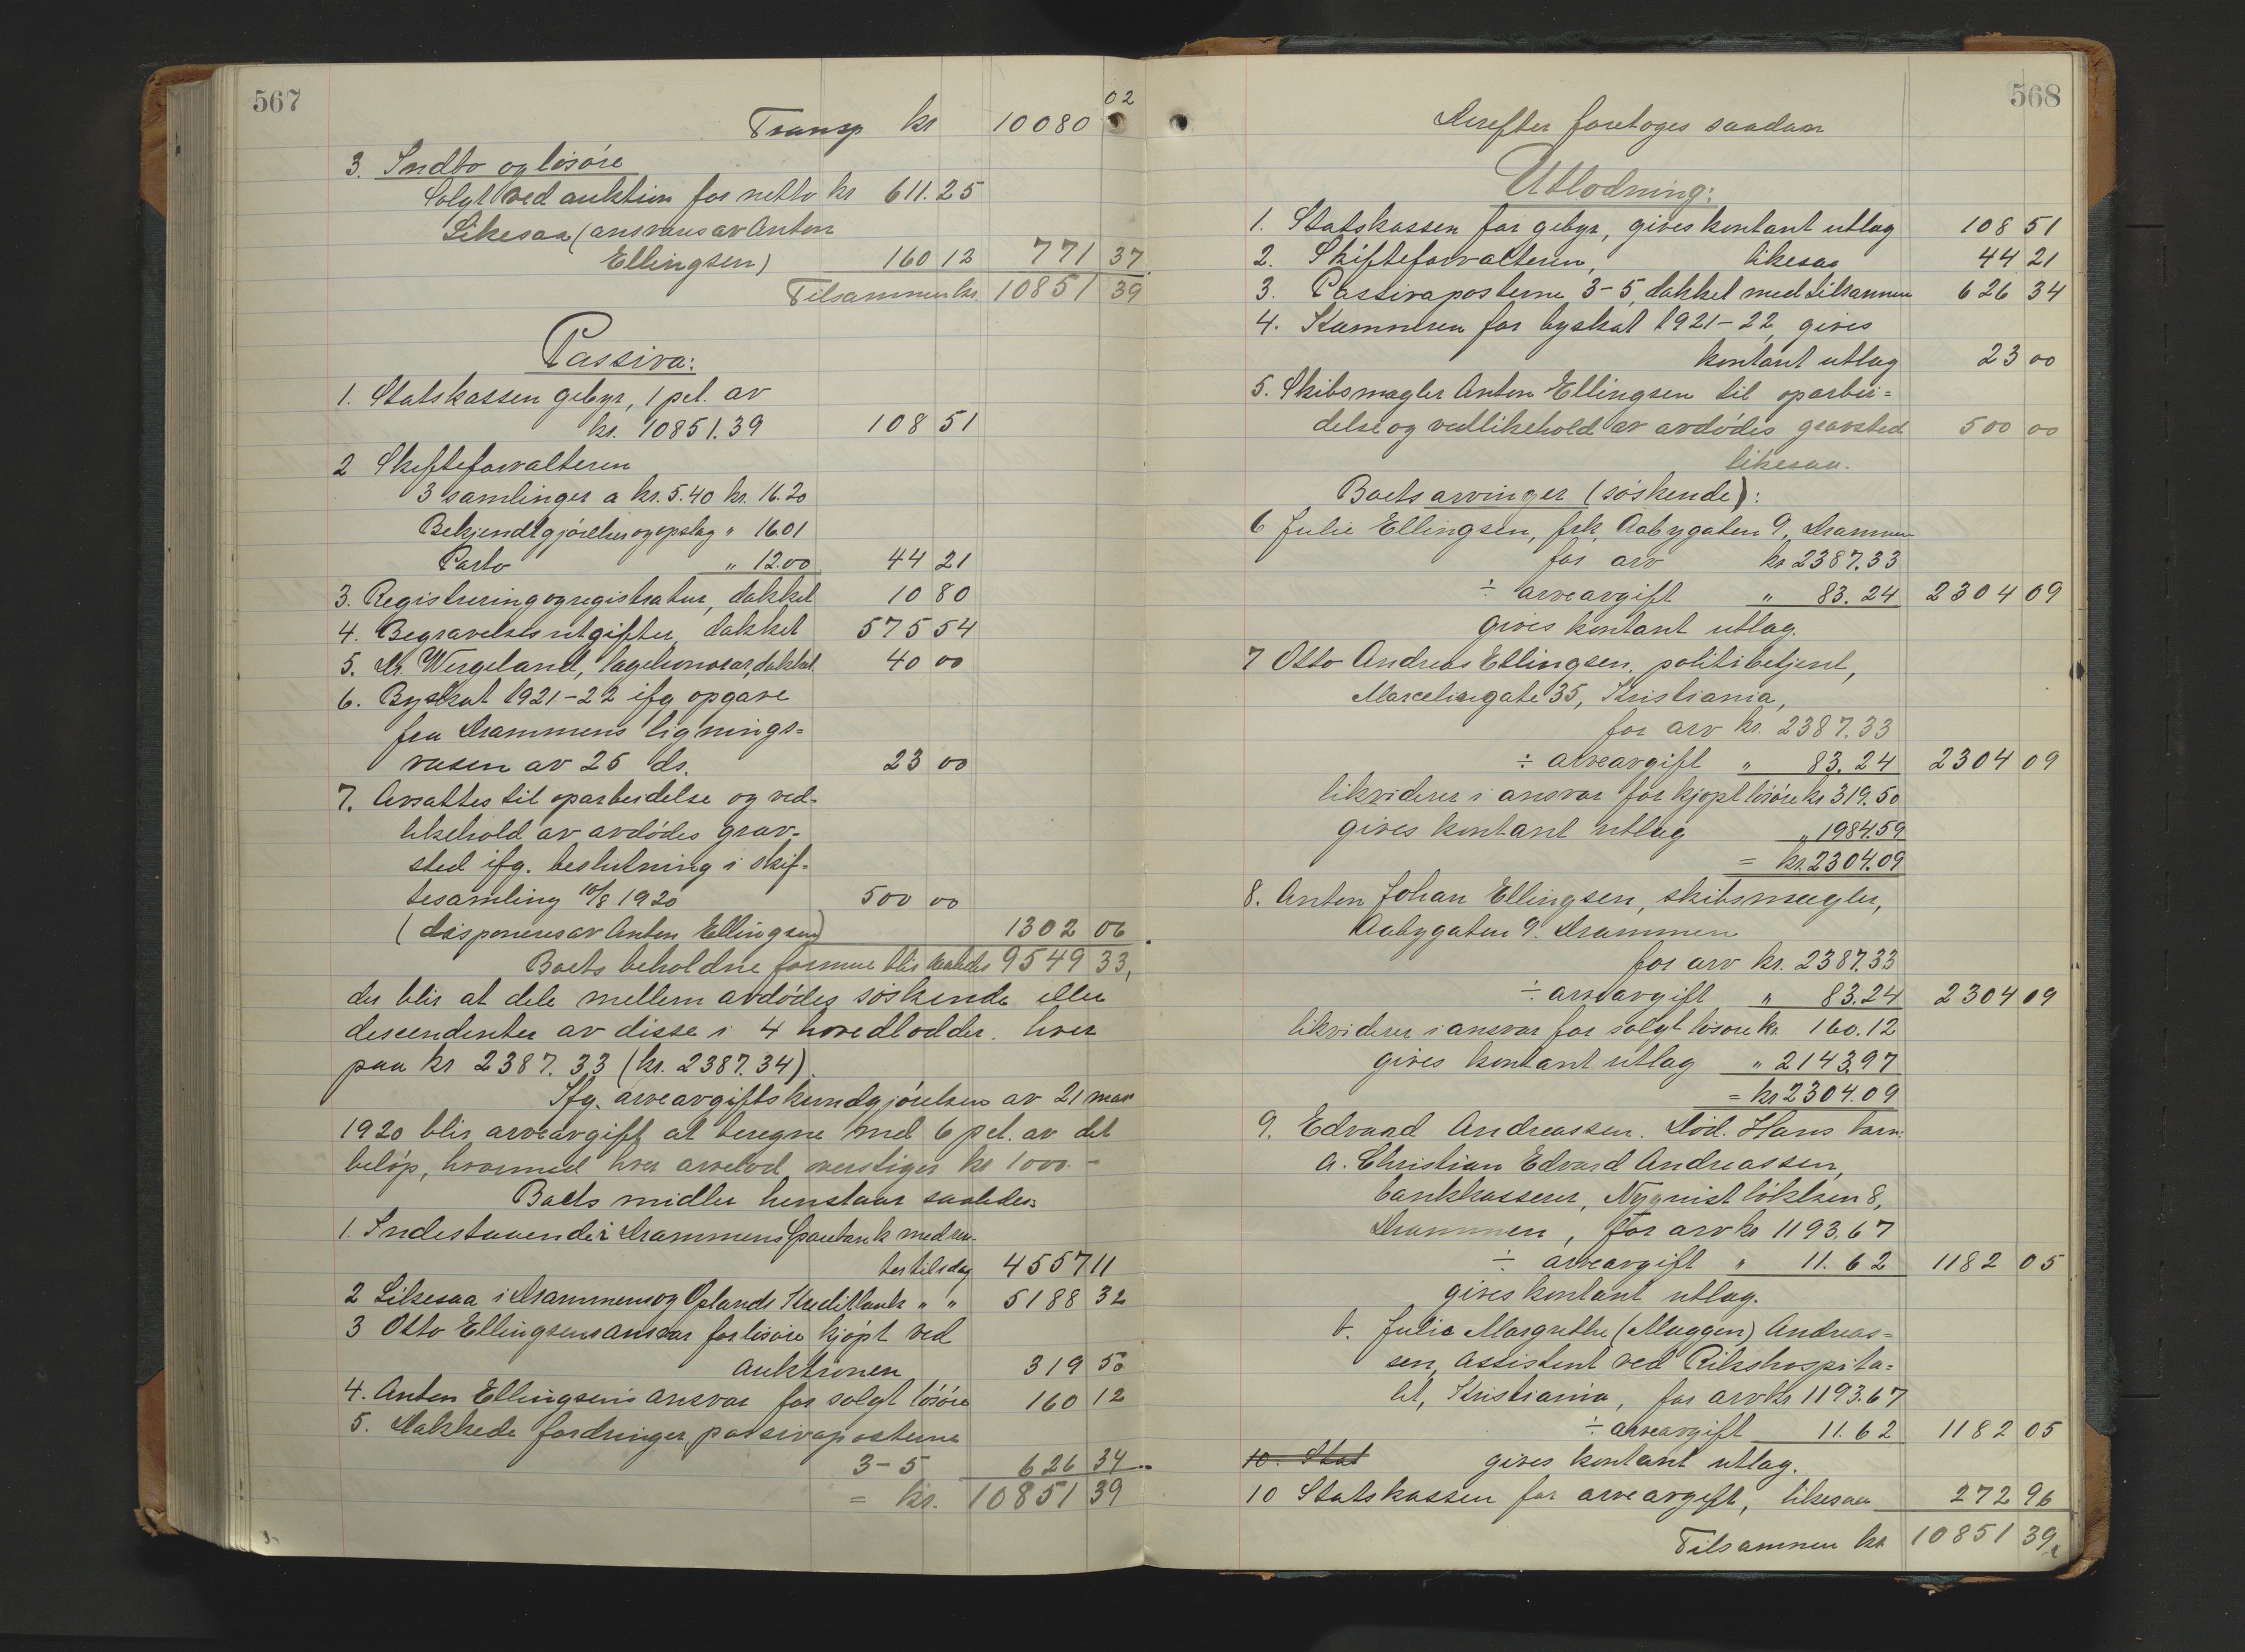 567
Transp kr 10080 02
3. Indbo og lösöre
Solgt ved auktion for netto kr 611.25
Likesaa (ansvares av Anton
Ellingsen) 160 12 771 37
Tilsammen kr. 10851 39
Passiva:
1. Statskassen gebyr, 1 pct. av
kr. 10851.39 108 51
2 Skifteforvalteren
3 samlinger a kr. 5.40 kr. 16.20
Bekjendtgjörelser og opslag " 16.01
Porto " 12.00 44 21
3. Registrering og registratur, dækket 10 80
4. Begravelsesutgifter, dækket 575 54
5. Dr. Wergeland, lægehonorar, dækket 40 00
6. Byskat 1921-22 ifg opgave
fra Drammens lignings-
væsen av 25 ds. 23 00
7. Avsættes til oparbeidelse og ved-
likehold av avdödes grav-
sted ifg. beslutning i skif-
tesamling 10/8 1920 500 00
(disponeres av Anton Ellingsen) 1302 06
Boets beholdne formue blir saaledes 9549 33,
der blir at dele mellem avdödes söskende eller
descendenter av disse i 4 hovedlodder. hver
paa kr 2387.33 (kr. 2387.34).
Ifg. arveavgiftskundgjörelsen av 21 mai
1920 blir arveavgift at beregne med 6 pct. av det
belöp, hvormed hver arvelod overstiger kr 1000.-
Boets midler henstaar saaledes:
1. Indestaaende i Drammens Sparebank med ren-
ter tilsdag 4557 11
2 Likesaa i Drammens og Oplands Kreditbank " " 5188 32
3 Otto Ellingsens ansvar for lösöre kjöpt ved
auktionen 319 50
4. Anton Ellingsens ansvar for solgt lösöre 160 12
5. Dækkede fordringer, passivaposterne
3-5 626 34
= kr. 10851 39
568
Derefter foretoges saadan
Utlodning:
1. Statskassen for gebyr, gives kontant utlæg 108 51
2. Skifteforvalteren, likesaa 44 21
3. Passivaposterne 3-5, dækket med tilsammen 626 34
4. Kæmneren for byskat 1921-22, gives
kontant utlæg 23 00
5. Skibsmægler Anton Ellingsen til oparbei-
delse og vedlikehold av avdödes gravsted 500 00
likesaa.
Boets arvinger (söskende):
6 Julie Ellingsen, frk, Aabygaten 9, Drammen
for arv kr 2387.33
÷ arveavgift " 83.24 2304 09
gives kontant utlæg.
7 Otto Andreas Ellingsen, politibetjent,
Marcelisegate 35, Kristiania,
for arv kr. 2387.33
÷ arveavgift " 83.24 2304 09
likviderer i ansvar for kjöpt lösöre kr 319.50
gives kontant utlæg " 1984.59
= kr 2304.09
8. Anton Johan Ellingsen, skibsmægler,
Aabygaten 9. Drammen
for arv kr. 2387.33
÷ arveavgift " 83.24 2304 09
likviderer i ansvar for solgt lösöre kr. 160.12
gives kontant utlæg " 2143.97
= kr 2304.09
9. Edvard Andreassen. Död. Hans barn:
a. Christian Edvard Andreassen,
bankkasserer, Nyqvist lökken 8,
Drammen, for arv kr 1193.67
÷ arveavgift " 11.62 1182 05
gives kontant utlæg.
b. Julie Margrethe (Maggen) Andreas-
sen, assistent ved Rikshospita-
let, Kristiania, for arv kr 1193.67
÷ arveavgift 11.62 1182 05
10. Stat gives kontant utlæg.
10 Statskassen for arveavgift, likesaa 272 96
Tilsammen kr 10851 39